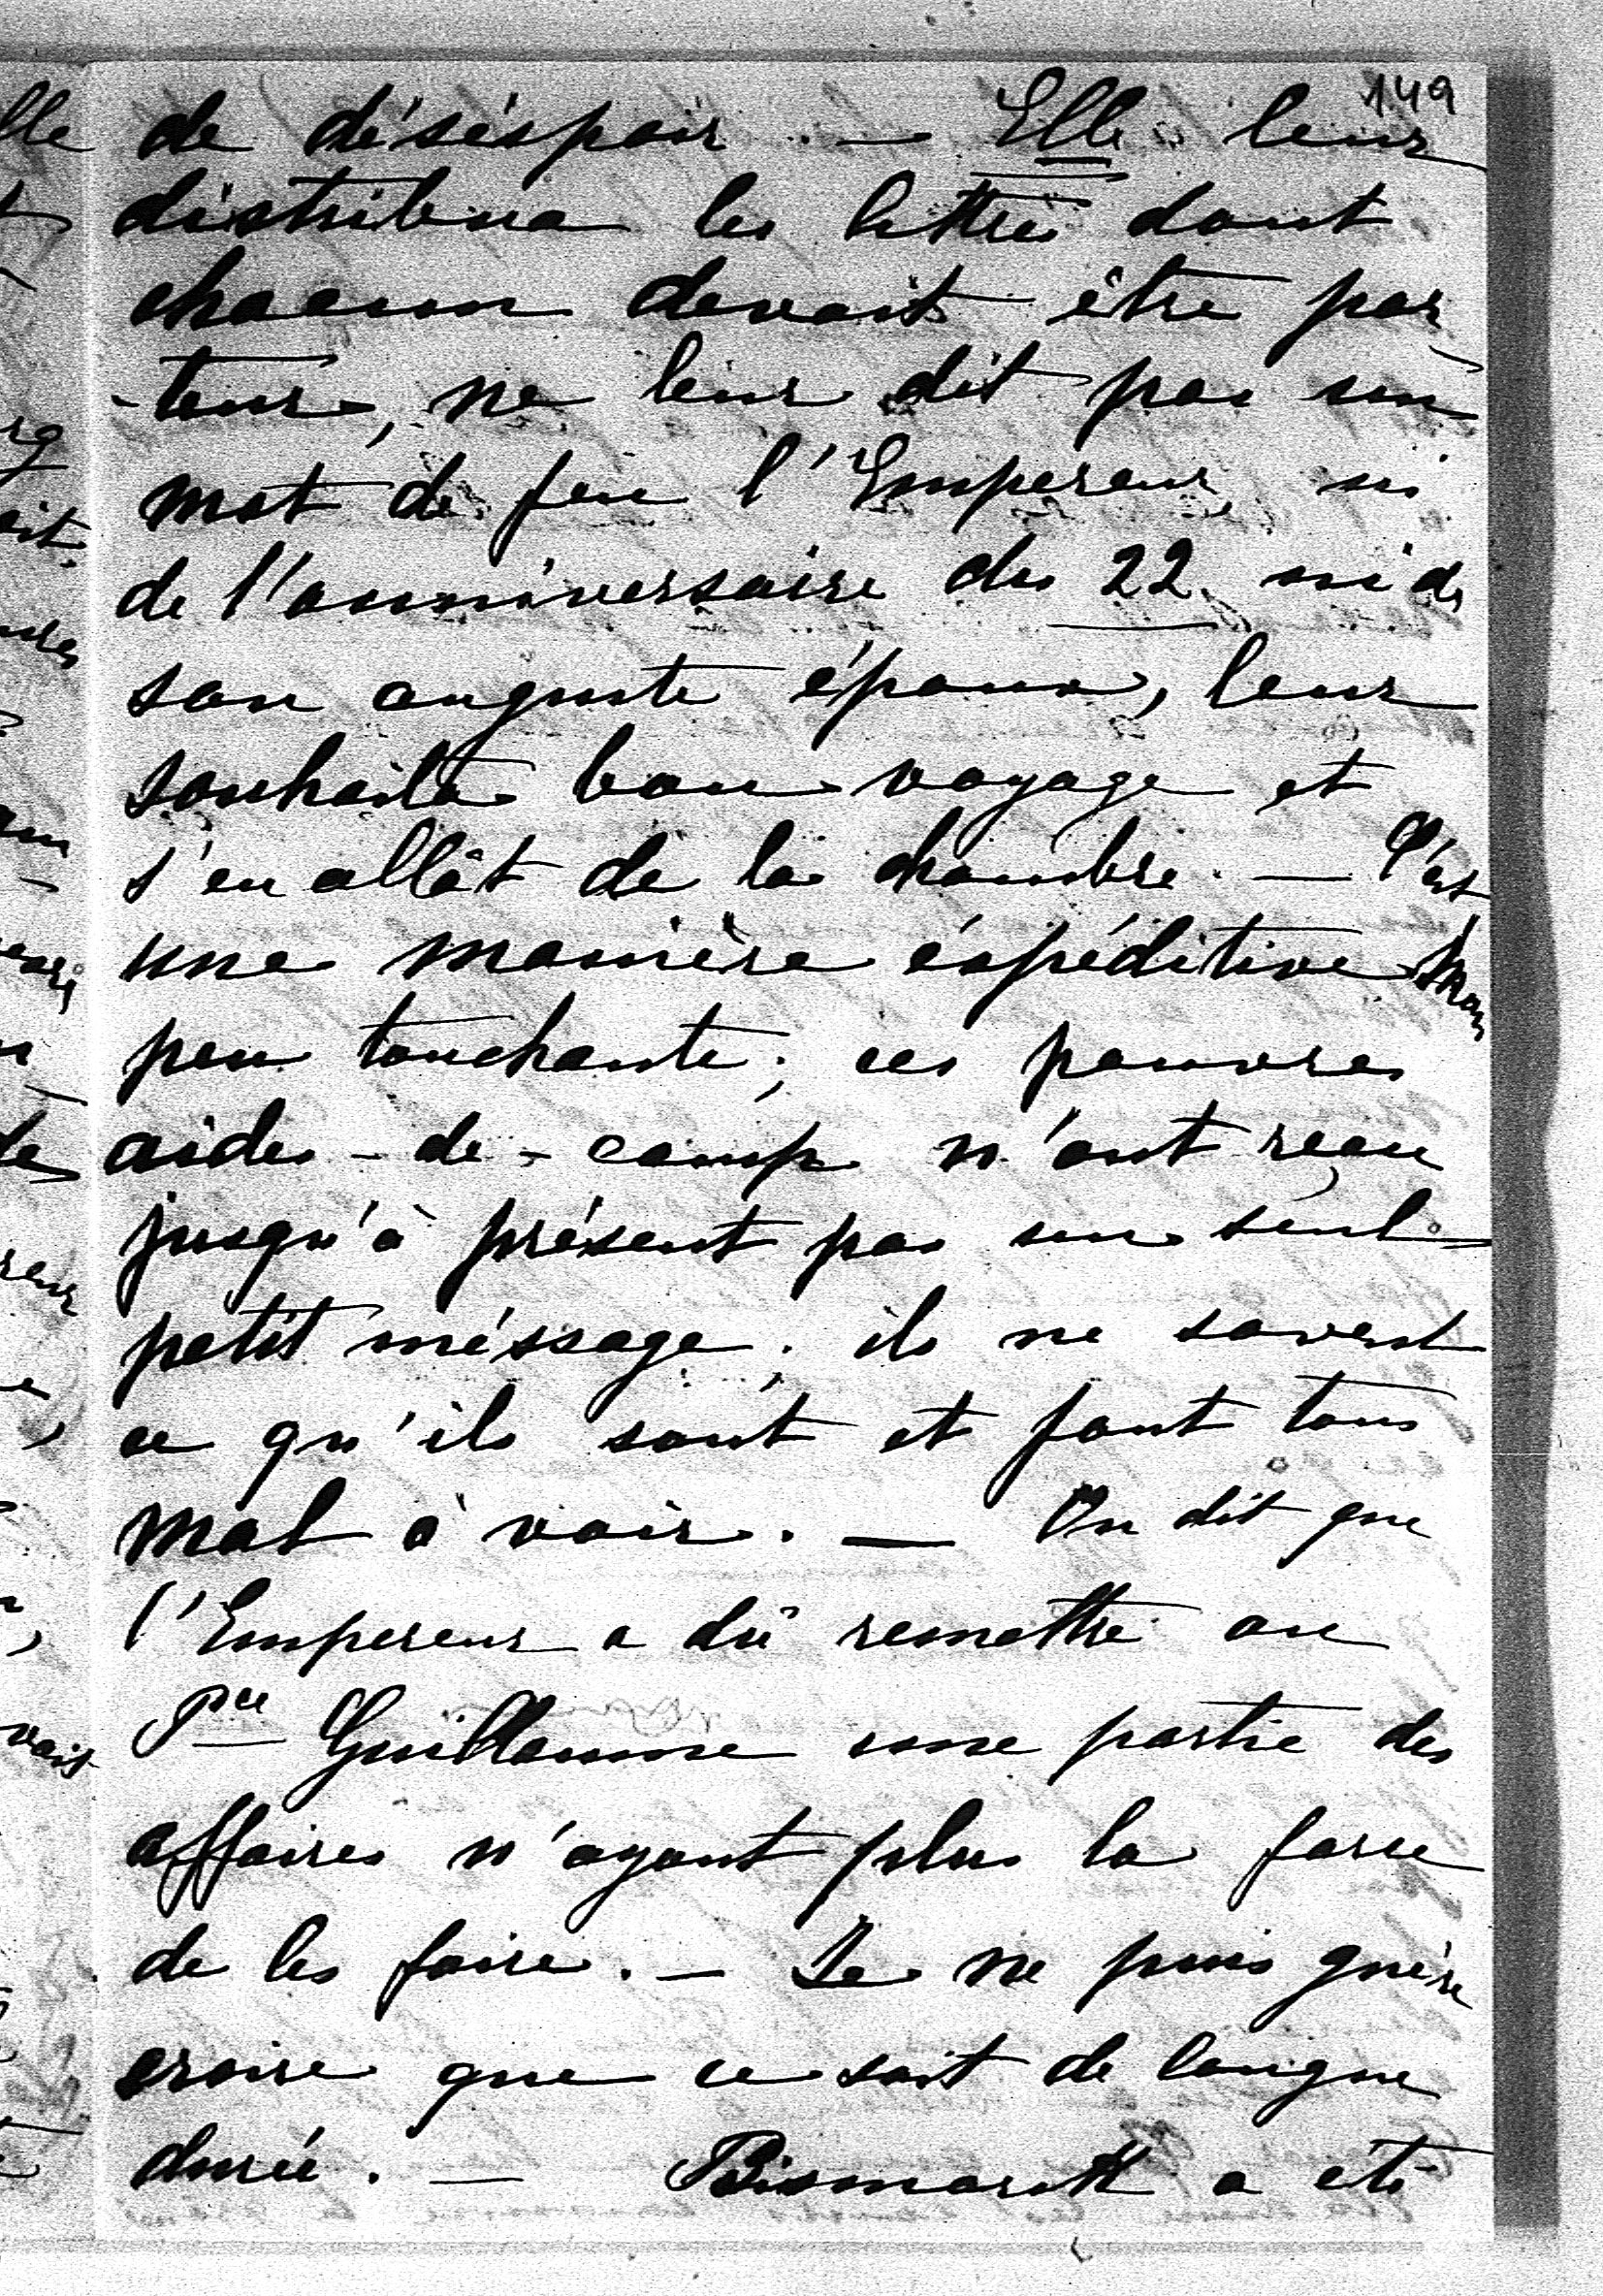 149
de déséspoir. — Elle leur
distribua les lettres dont
chacun devait être por
-teur, ne leur dit pas un
mot de feu l'Empereur, ni
de l'anniversaire du 22, ni de
son auguste époux, leur
souhaita bon voyage et
s'en allât de la chambre. — C'est
une manière éxpéditive mais
peu touchante; ces pauvres
aides-de-camp n'ont reçu
jusqu'à présent pas un seul
petit méssage; ils ne savent
ce qu'ils sont et font tous
mal à voir. — On dit que
l'Empereur a dû remettre au
Pce Guillaume une partie des
affaires n'ayant plus la force
de les faire. — Je ne puis guère
croire que ce soit de longue
durée. — Bismarck a été